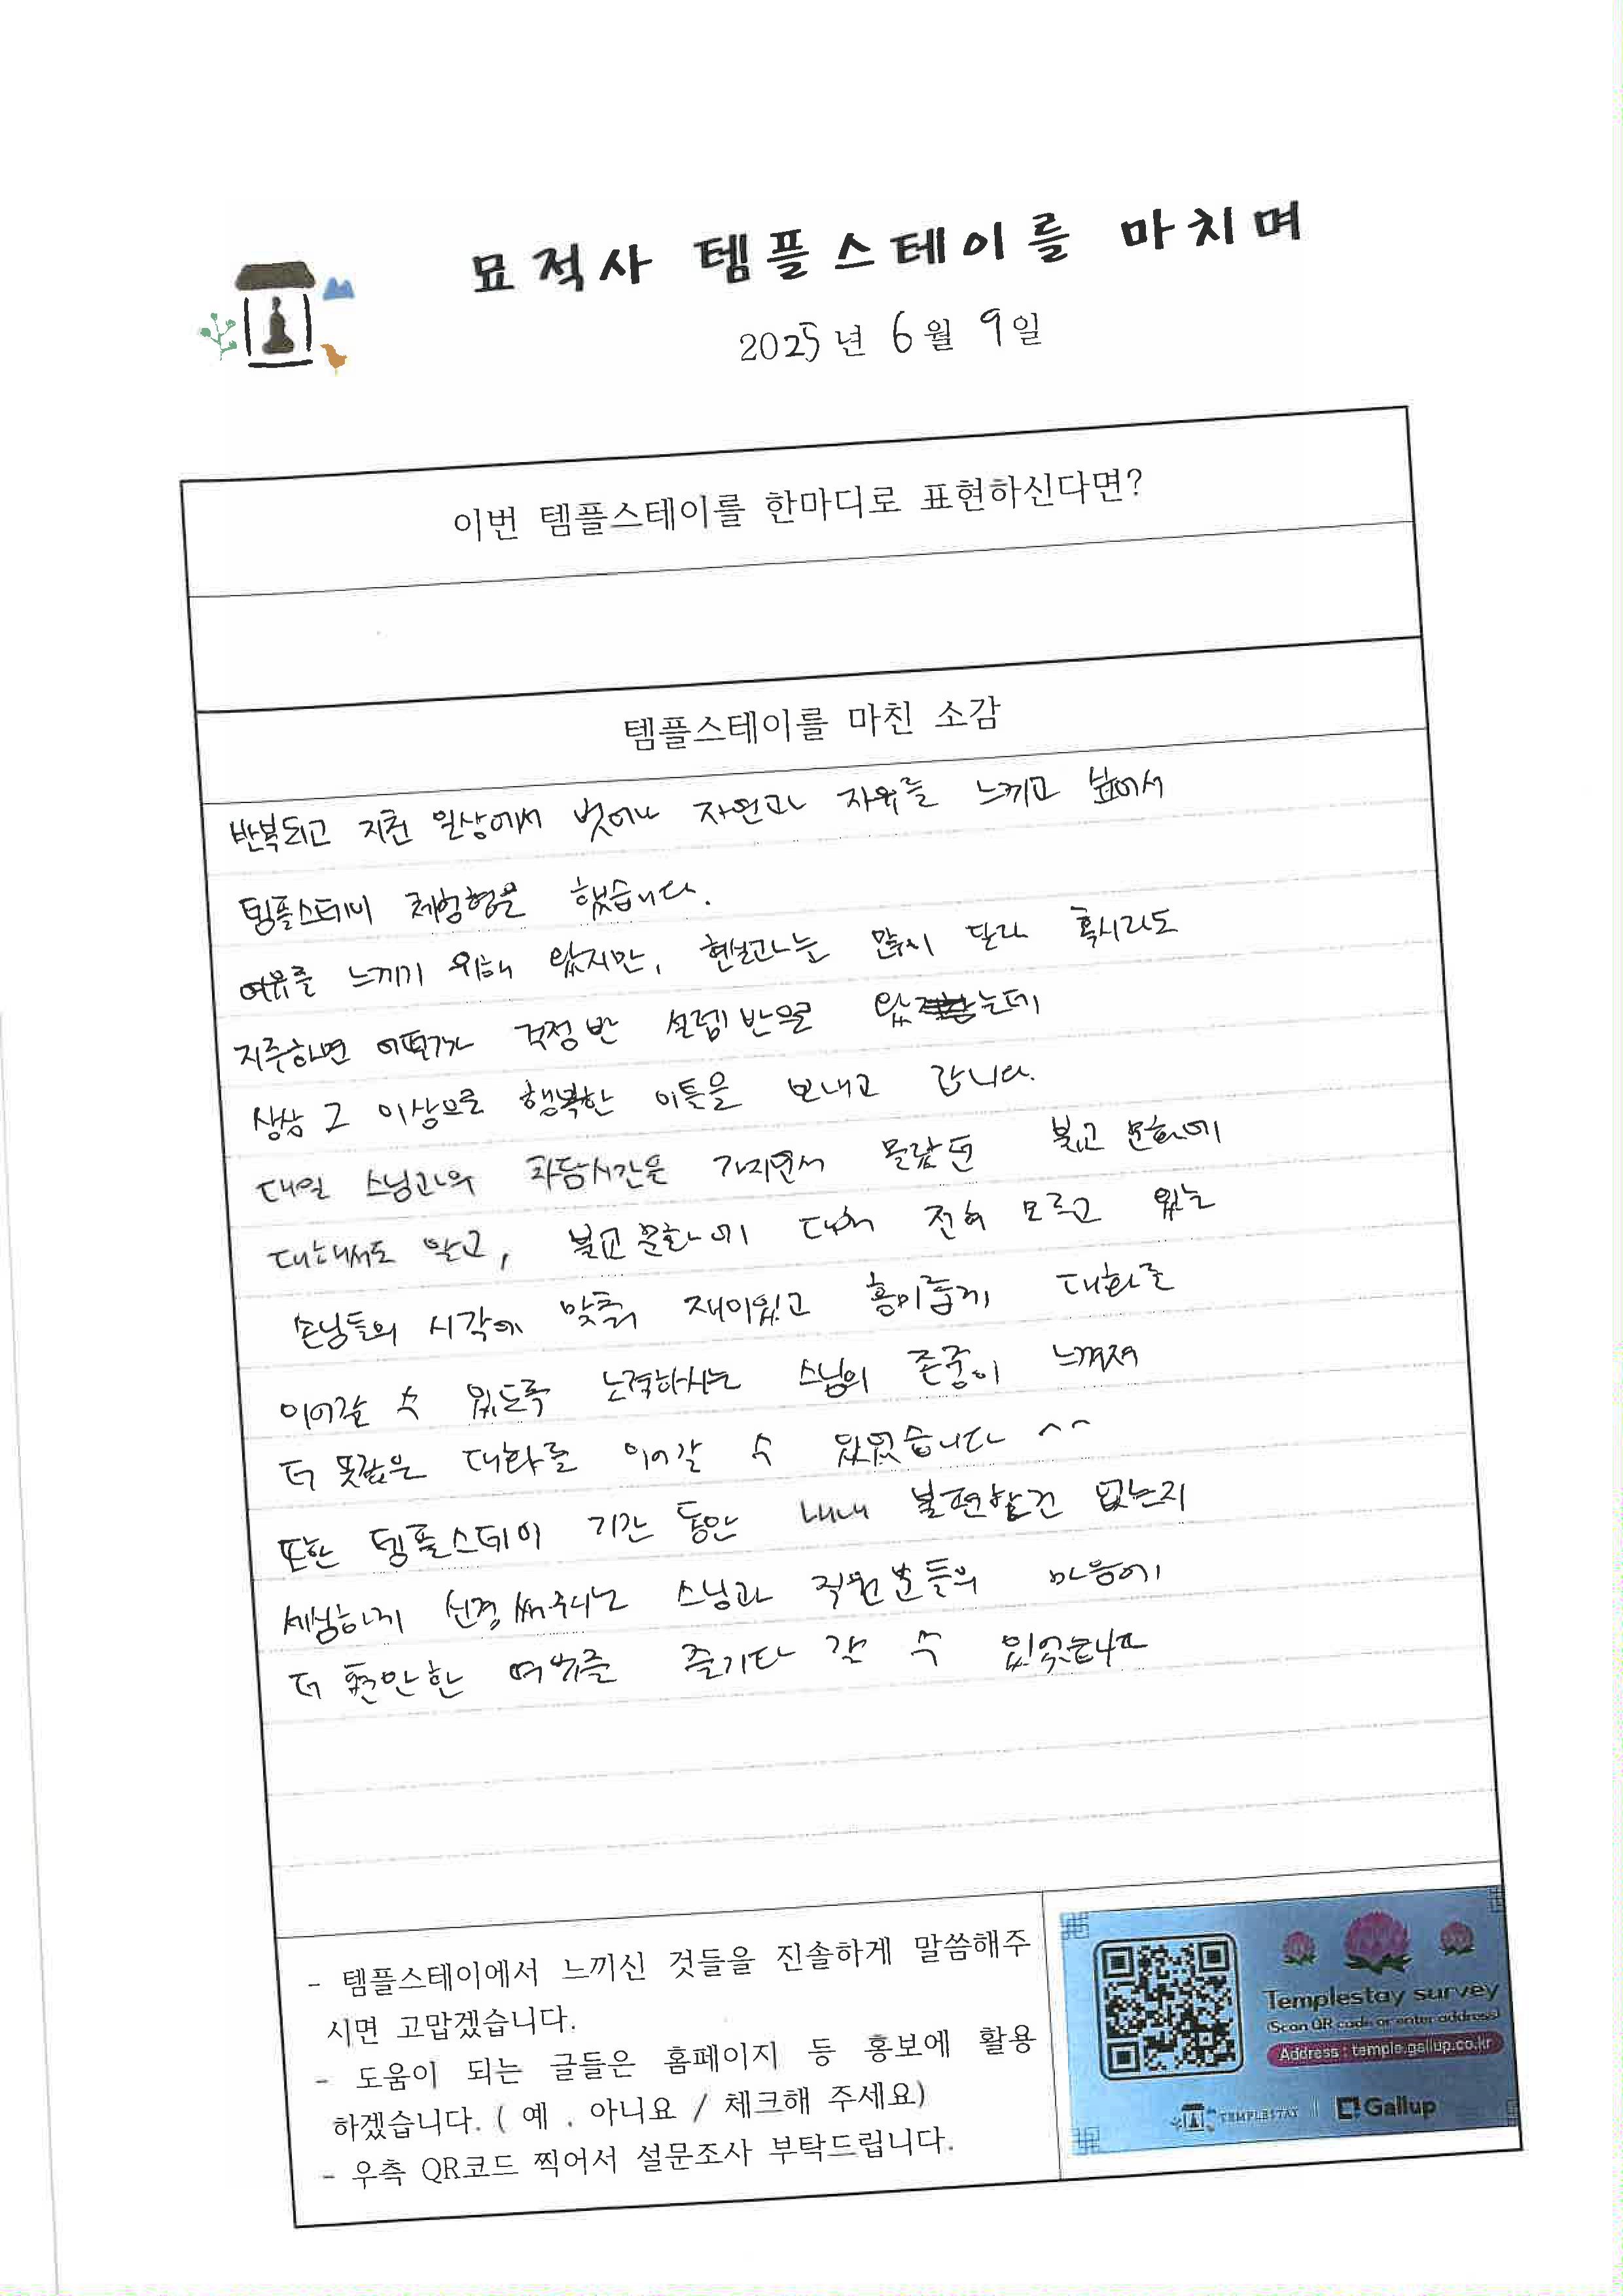 묘적사 템플스테이를 마치며
2025년 6월 9일
이번 템플스테이를 한마디로 표현하신다면?
템플스테이를 마친 소감
반복되고 지친 일상에서 벗어나 자연과 자유를 느끼고 싶어서
템플스테이 체험형을 했습니다.
여유를 느끼기 위해 왔지만, 현실과는 많이 달라 혹시라도
지루하면 어떡하나 걱정 반 설렘 반으로 왔는데
상상 그 이상으로 행복한 이틀을 보내고 갑니다.
대일 스님과의 차담시간을 가지면서 몰랐던 불교 문화에
대해서도 알고, 불교문화에 대해 전혀 모르고 있는
손님들의 시각에 맞춰 재미있고 흥미롭게 대화를
이어갈 수 있도록 노력하시는 스님의 존중이 느껴져
더 뜻깊은 대화를 이어갈 수 있었습니다 ^^
또한 템플스테이 기간 동안 내내 불편한건 없는지
세심하게 신경써주시는 스님과 직원분들의 마음에
더 편안한 여유를 즐기다 갈 수 있었습니다
- 템플스테이에서 느끼신 것들을 진솔하게 말씀해주
시면 고맙겠습니다.
- 도움이 되는 글들은 홈페이지 등 홍보에 활용
하겠습니다. ( 예 . 아니요 / 체크해 주세요)
- 우측 QR코드 찍어서 설문조사 부탁드립니다.
Templestay survey
(Scan QR code or enter address)
Address : temple.gallup.co.kr
TEMPLESTAY | Gallup